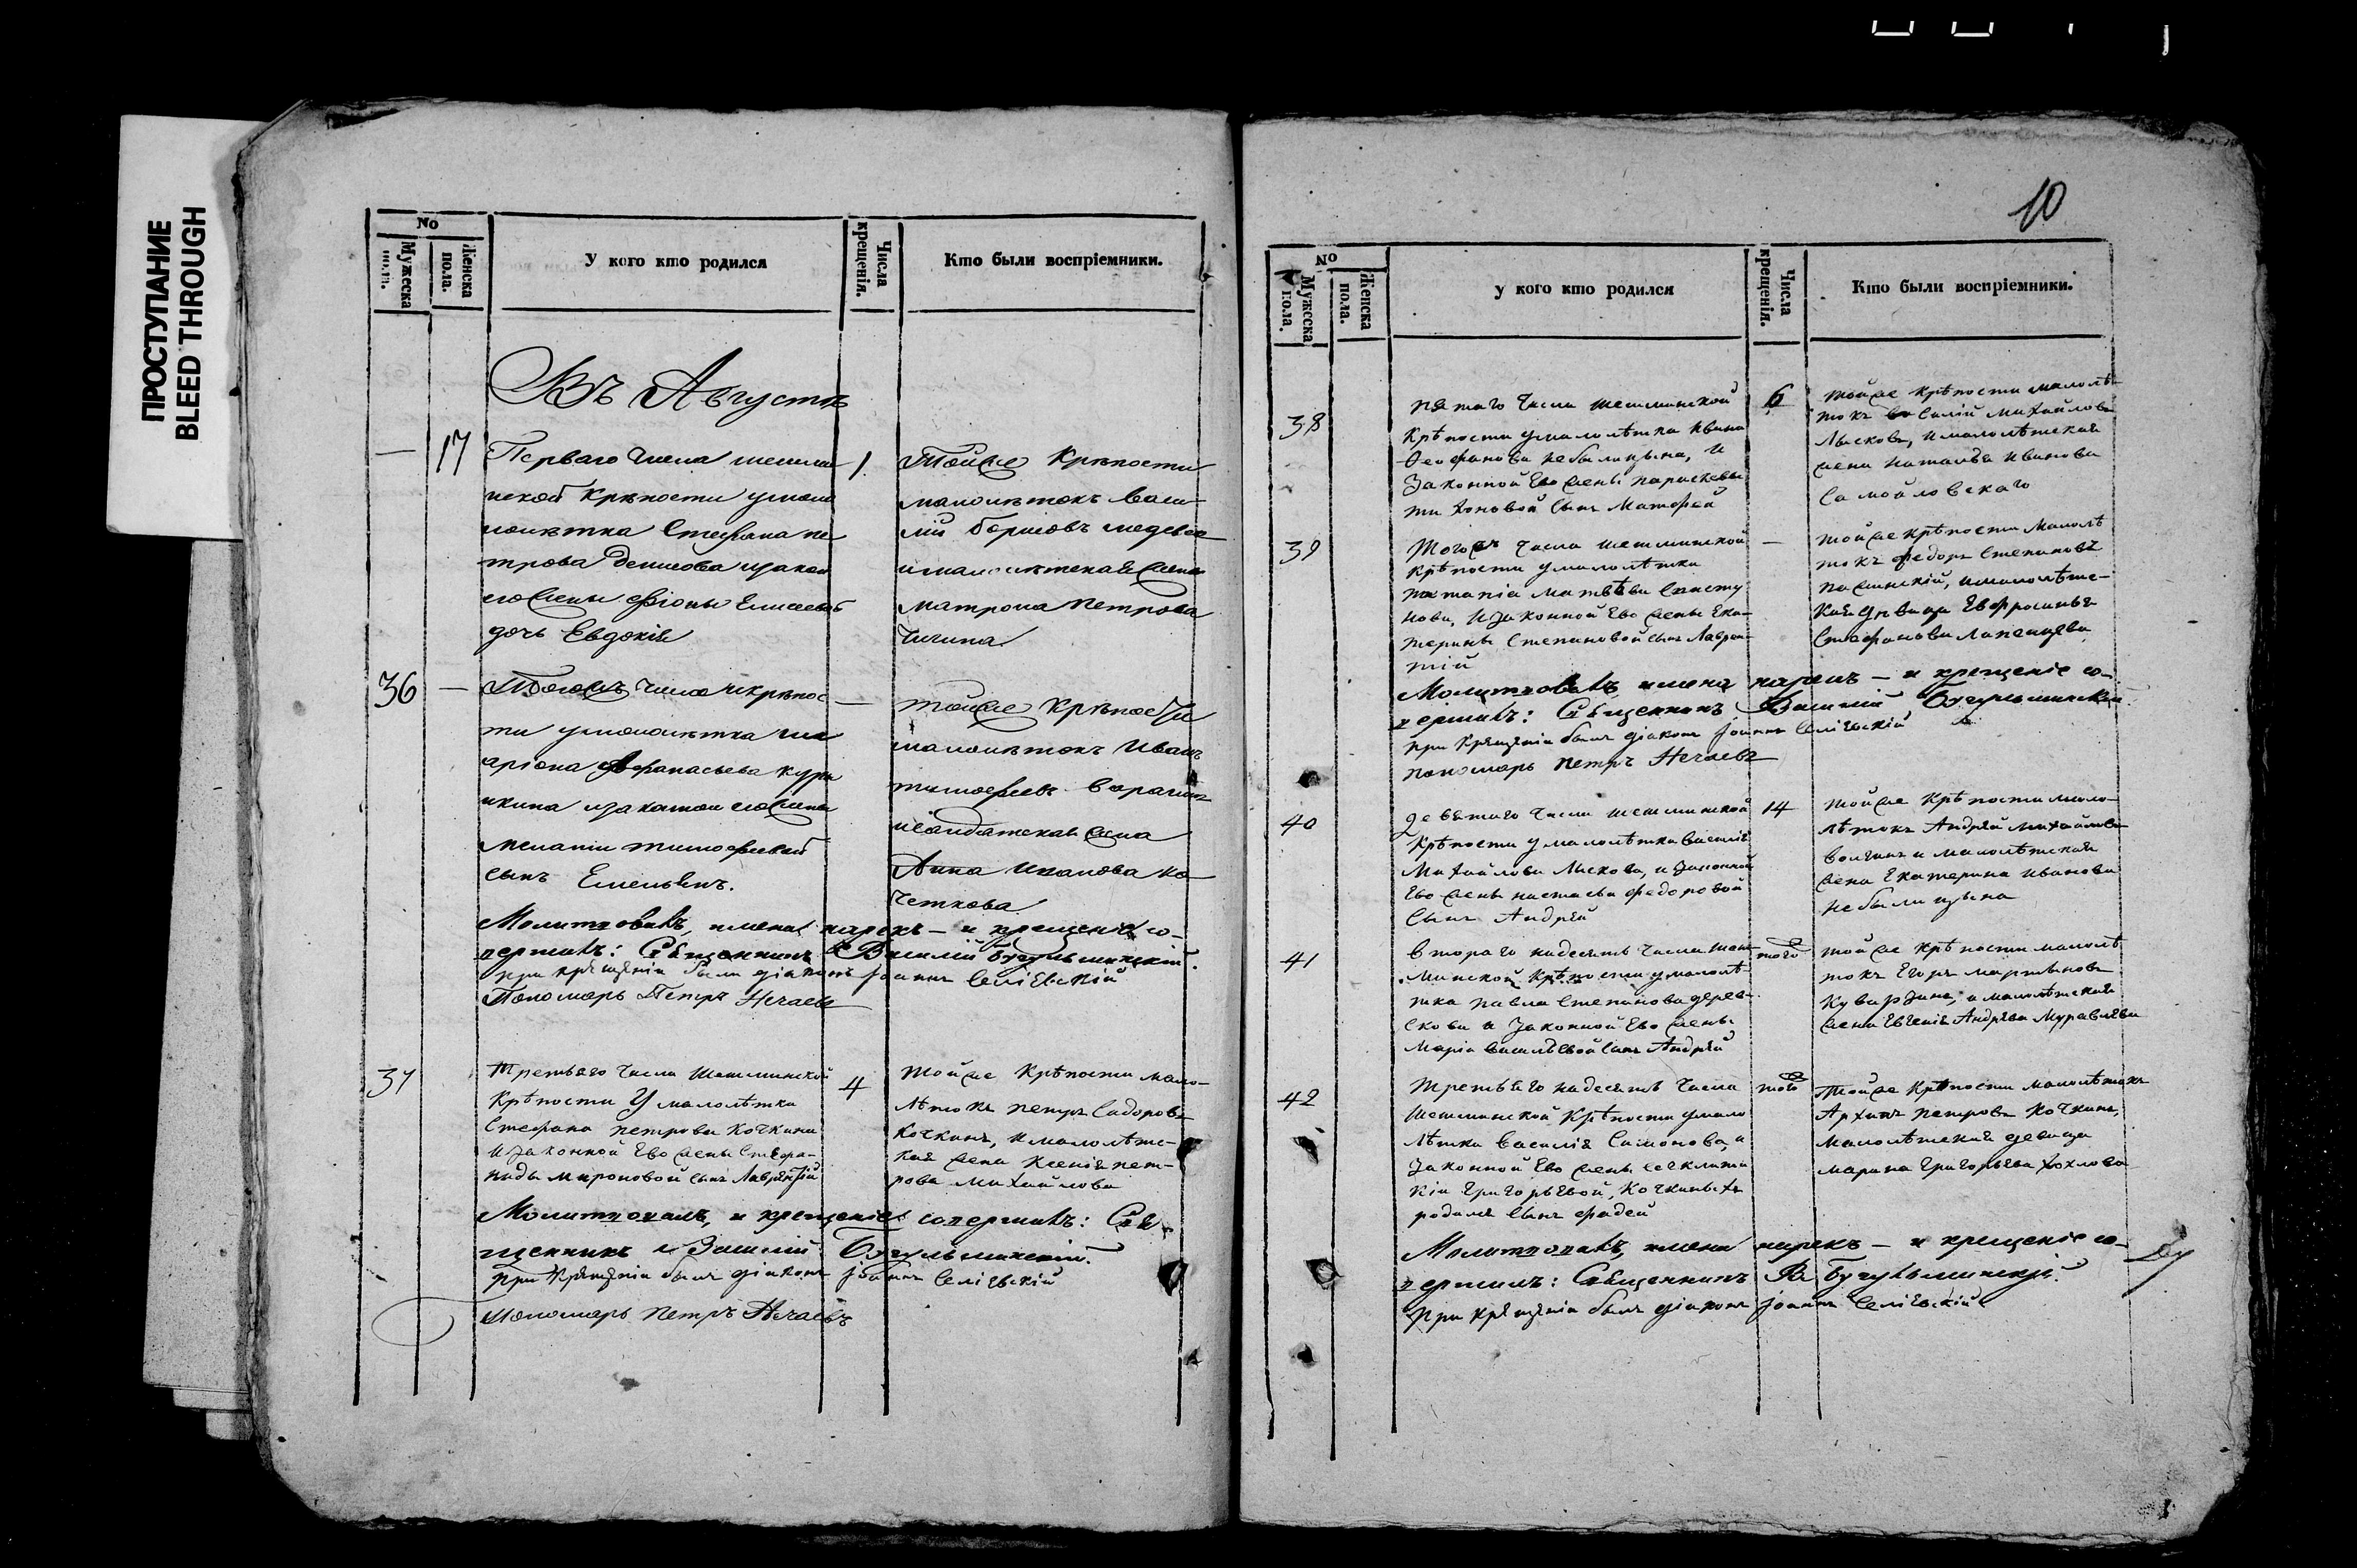 ПРОСТУПАНИЕ
BLEED THROUGH
No
Мужеска пола.
Женска пола.
У кого кто родился
Числа крещенія.
Кто были воспріемники.
Въ Августѣ
—
17
Перваго числа шешми-
нской крѣпости умало
лѣтка Стефана пе
трова Денисова изакон
егоЖены Фіоны Елисеевой
дочь Евдокія
1.
Тойже Крѣпости
малолѣтокъ Васи-
лій Борисовъ
ималолѣтская Жена
Матрона Петрова
36
—
Тогожъ числа крѣпос-
ти умалолѣтка Ила
аріона Афанасьева
изаконой егоЖены
Меланіи тимофеевой
сынъ Емельянъ.
—
тойже крѣпости
малолѣтокъ Иванъ
тимофеевъ
исолдатская жена
Анна Иванова ко
четкова
Молитвовалъ, имена нарекъ — и крещеніе со-
вершилъ: Священникъ Василій Бугульминскій.
при крещеніи былъ діаконъ Іоаннъ Селіевскій
Пономарь Петръ Нечаевъ
37
Третьяго числа Шешминской
Крѣпости У малолѣтка
Стефана петрова Кочкина
изаконной Ево жены Стефа-
ниды мироновой сынъ Лаврентій
4
Тойже Крѣпости мало-
лѣтокъ петръ Сидоровъ
Кочкинъ, ималолѣтс-
кая жена Ксенія пет-
рова Михайлова
Молитвовалъ, и крещеніе совершилъ: Свя-
щенникъ Василій Бугульминскій.
при Крещеніи былъ діаконъ Іоаннъ Селіевскій
пономарь петръ Нечаевъ
10
No
Мужеска пола.
Женска пола.
у кого кто родился
Числа крещенія.
Кто были воспріемники.
38
пятаго числа шешминской
Крѣпости умалолѣтка Ивана
Феофанова небылицына, И
Законной Ево жены параскевы
тихоновой сынъ Матфей
6
тойже крѣпости малолѣ-
токъ василій михайловъ
Лысковъ, ималолѣтская
жена наталья иванова
Самойловскаго
39
Тогожъ числа шешминской
Крѣпости умалолѣтка
патапія матвѣева
нова, Изаконной Ево жены Ека-
терины Степановой сынъ Лаврен-
тій
—
тойже крѣпости Малолѣ
токъ федоръ степановъ
ималолѣтс-
кая дѣвица Евфросинья
Стефанова
Молитвовалъ, имена нарекъ — и крещеніе со-
вершилъ: Священникъ Василій Бугульминскій
при крещеніи былъ діаконъ Іоаннъ Селіевскій
пономарь петръ Нечаевъ
40
девятаго числа шешминской
Крѣпости умалолѣтка василія
Михайлова Лыскова, и законной
Ево жены настасьи федоровой
сынъ Андрей
14
тойже Крѣпости мало-
лѣтокъ Андрей михайловъ
волгинъ и малолѣтская
жена Екатерина иванова
небылицына
41
втораго надесять числа шеш-
минской крѣпости умалолѣ-
тка павла степанова дерев-
скова и законной Ево жены
Маріи васильевой сынъ Андрей
того
тойже крѣпости малолѣ
токъ Егоръ мартыновъ
и малолѣтская
жена Евгенія Андреева Муравлева
42
третьяго надесять числа
Шешминской Крѣпости умало
лѣтка василія Самонова, и
законной Ево жены
Григорьевой, Кочкиныхъ
родился сынъ фадей
того
Тойже Крѣпости малолѣтокъ
Архипъ петровъ Кочкинъ,
малолѣтская девица
марина григорьева хохлова
Молитвовалъ, имена нарекъ — и крещеніе со-
вершилъ: Священникъ В. Бугульминскій.
при крещеніи былъ діаконъ Іоаннъ Селіевскій